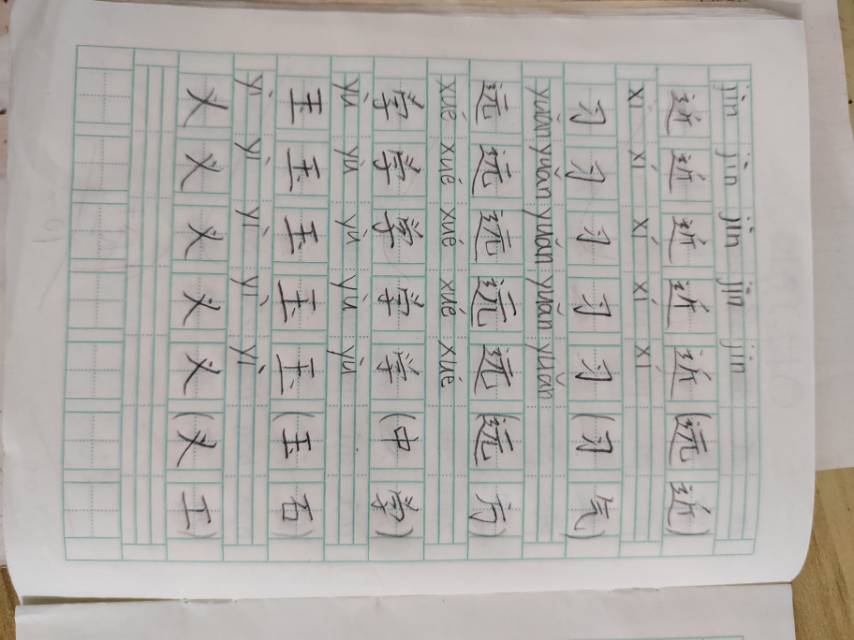 jìn jìn jìn jìn jìn
近近近近近(远近)
xí xí xí xí xí
习习习习习(习气)
yuǎn yuǎn yuǎn yuǎn yuǎn
远远远远远(远方)
xué xué xué xué xué
学学学学学(中学)
yù yù yù yù yù
玉玉玉玉玉(玉石)
yì yì yì yì yì
义义义义义(义工)